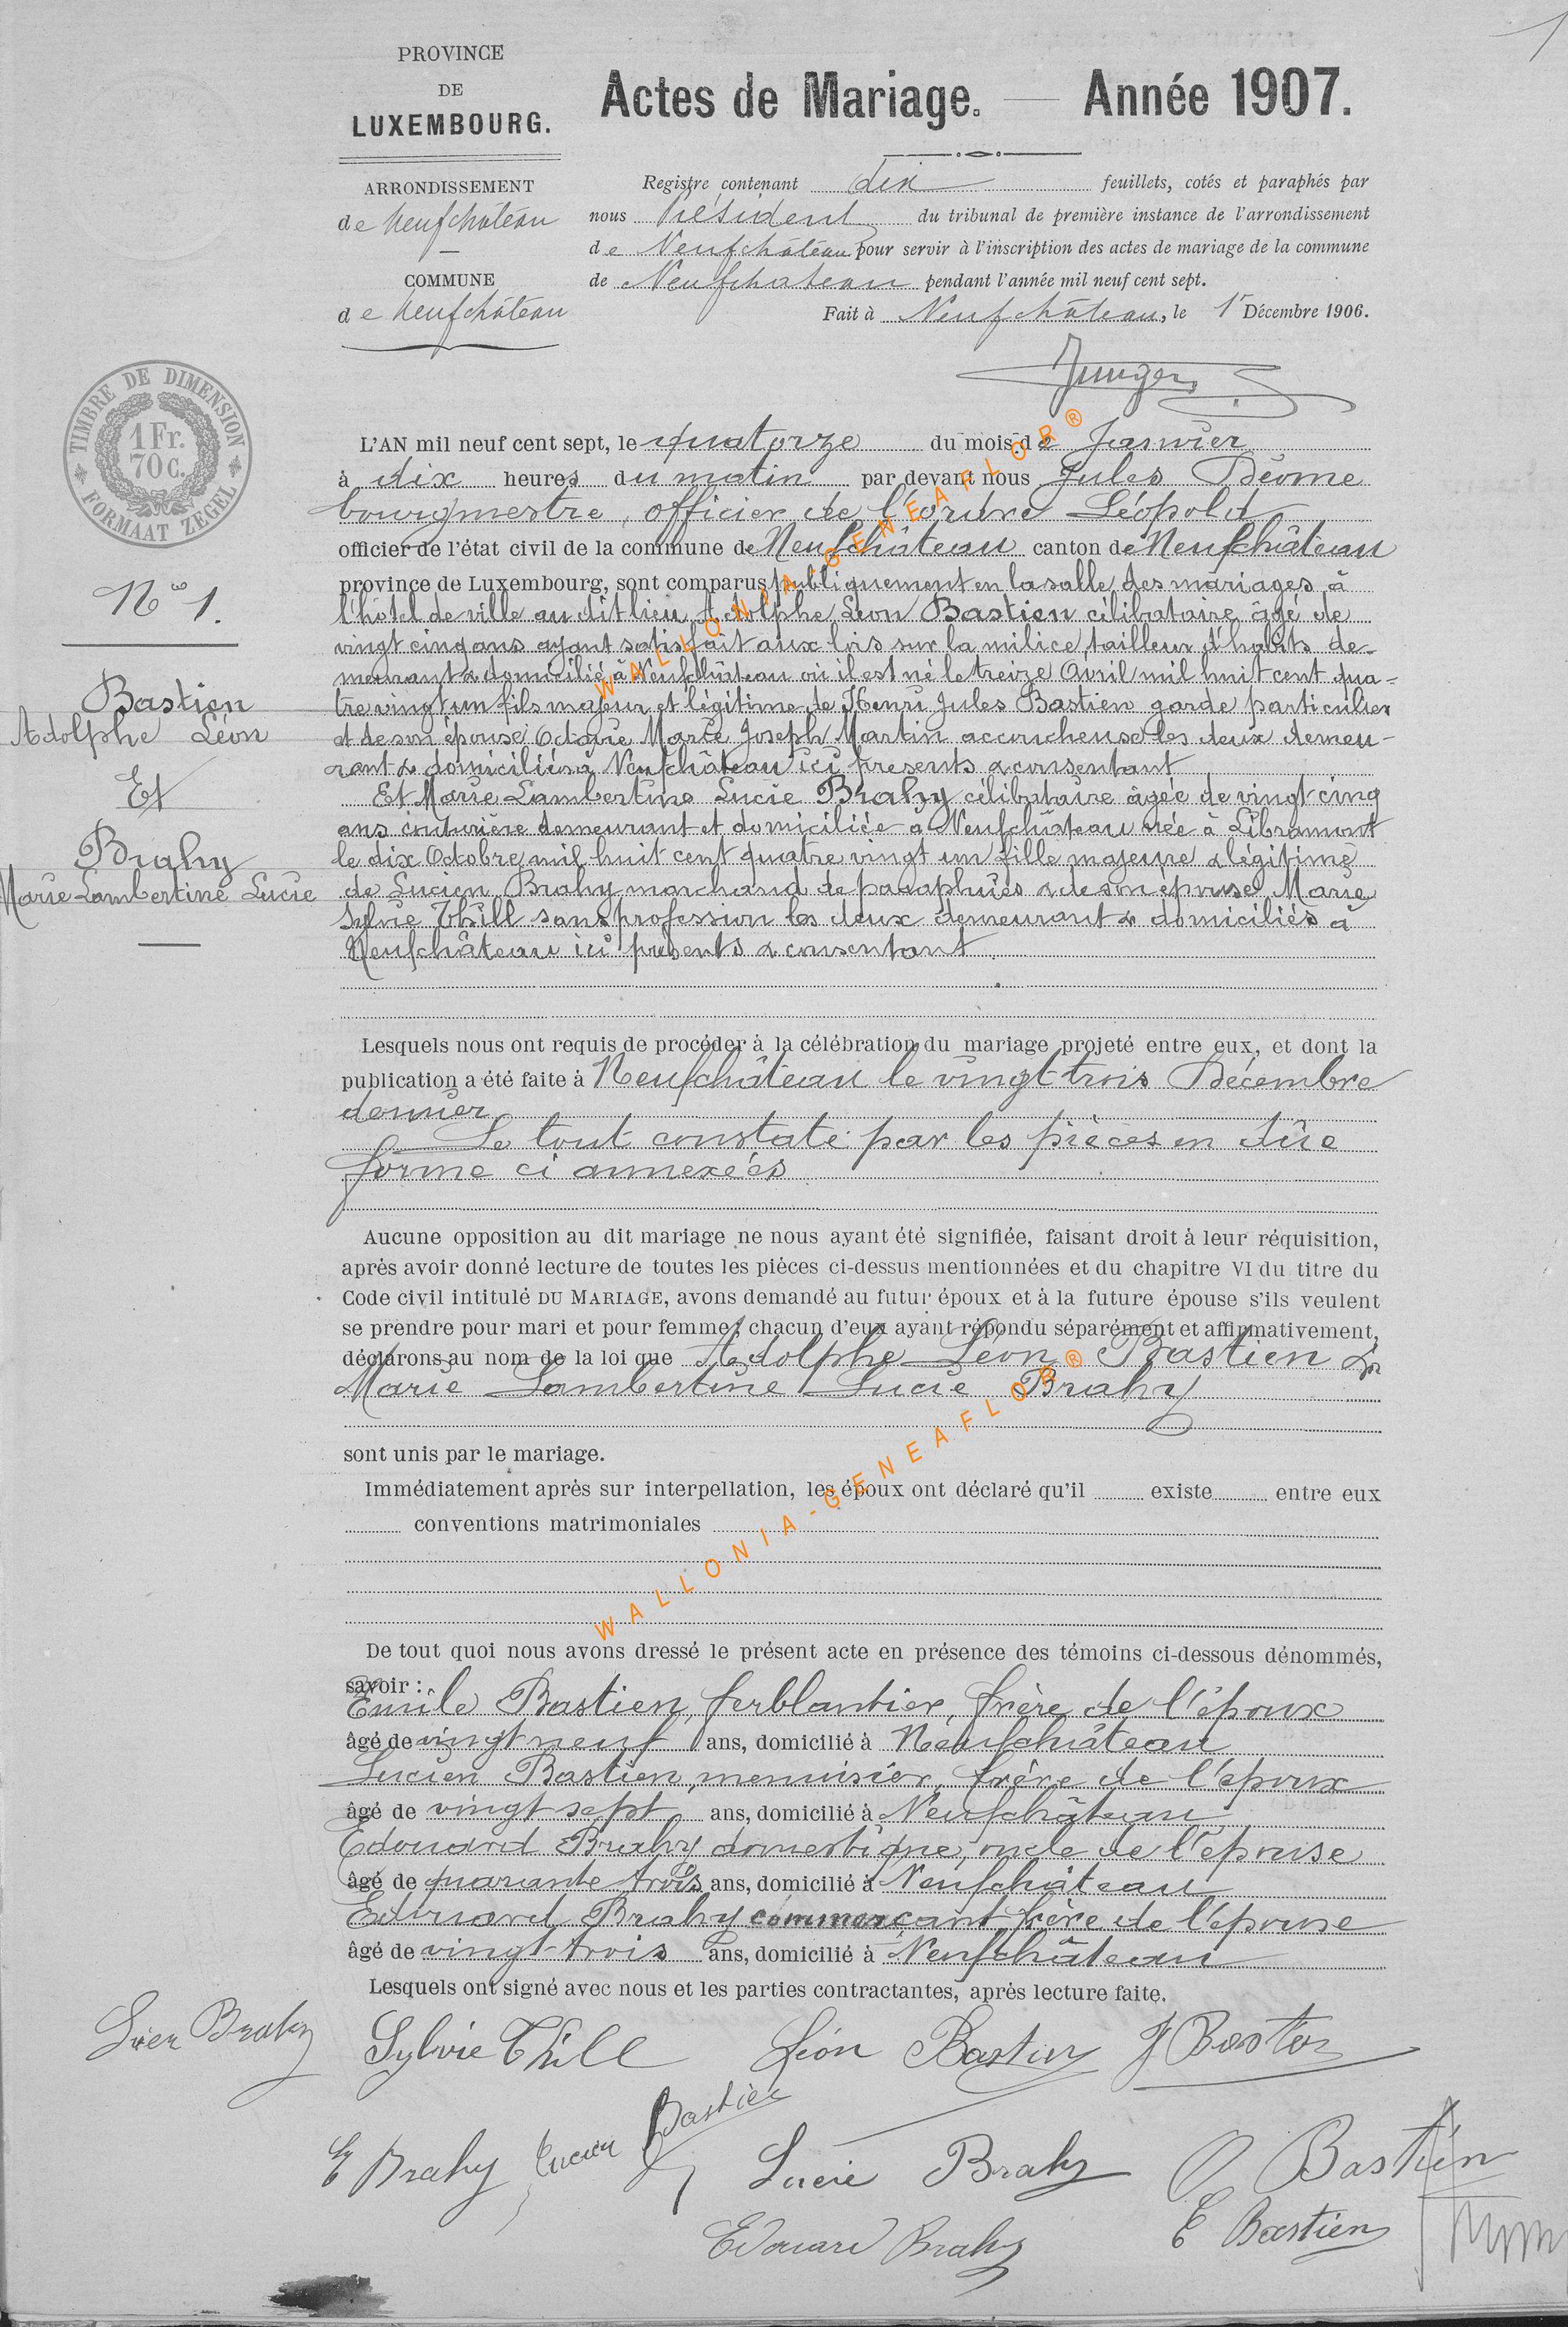 1
PROVINCE
DE
LUXEMBOURG.
Actes de Mariage. — Année 1907.
ARRONDISSEMENT
de Neufchâteau
COMMUNE
de Neufchâteau
Registre contenant dix feuillets, cotés et paraphés par
nous Président du tribunal de première instance de l'arrondissement
de Neufchâteau pour servir à l'inscription des actes de mariage de la commune
de Neufchateau pendant l'année mil neuf cent sept.
Fait à Neufchâteau, le 1r Décembre 1906.
TIMBRE DE DIMENSION
1 Fr.
70 c.
FORMAAT ZEGEL
No 1.
Bastien
Adolphe Léon
Et
Brahy
Marie Lambertine Lucie
L'AN mil neuf cent sept, le quatorze du mois de Janvier
à dix heures du matin par devant nous Jules Déome
bourgmestre, officier de l'ordre Léopold
officier de l'état civil de la commune de Neufchâteau canton de Neufchâteau
province de Luxembourg, sont comparus publiquement en la salle des mariages à
l'hôtel de ville au dit lieu Adolphe Léon Bastien célibataire âgé de
vingt cinq ans ayant satisfait aux lois sur la milice, tailleur d'habits de-
meurant & domicilié à Neufchâteau où il est né le treize Avril mil huit cent qua-
tre vingt un fils majeur et légitime de Henri Jules Bastien garde particulier
et de son épouse Octavie Marie Joseph Martin accoucheuse les deux demeu-
rant & domiciliés à Neufchâteau ici présents & consentant
Et Marie Lambertine Lucie Brahy célibataire âgée de vingt cinq
ans couturière demeurant et domiciliée à Neufchâteau née à Libramont
le dix Octobre mil huit cent quatre vingt un fille majeure & légitime
de Lucien Brahy marchand de parapluies & de son épouse Marie
Sylvie Thill sans profession les deux demeurant & domiciliés à
Neufchâteau ici présents & consentant
Lesquels nous ont requis de procéder à la célébration du mariage projeté entre eux, et dont la
publication a été faite à Neufchâteau le vingt trois Décembre
dernier
Le tout constaté par les pièces en dûe
forme ci annexées
Aucune opposition au dit mariage ne nous ayant été signifiée, faisant droit à leur réquisition,
après avoir donné lecture de toutes les pièces ci-dessus mentionnées et du chapitre VI du titre du
Code civil intitulé DU MARIAGE, avons demandé au futur époux et à la future épouse s'ils veulent
se prendre pour mari et pour femme; chacun d'eux ayant répondu séparément et affirmativement,
déclarons au nom de la loi que Adolphe Léon Bastien &
Marie Lambertine Lucie Brahy
sont unis par le mariage.
Immédiatement après sur interpellation, les époux ont déclaré qu'il existe entre eux
conventions matrimoniales
De tout quoi nous avons dressé le présent acte en présence des témoins ci-dessous dénommés,
savoir :
Emile Bastien, ferblantier, frère de l'époux
âgé de vingt neuf ans, domicilié à Neufchâteau
Lucien Bastien, menuisier, frère de l'époux
âgé de vingt sept ans, domicilié à Neufchâteau
Edouard Brahy domestique, oncle de l'épouse
âgé de quarante trois ans, domicilié à Neufchâteau
Edouard Brahy commerçant, frère de l'épouse
âgé de vingt-trois ans, domicilié à Neufchâteau
Lesquels ont signé avec nous et les parties contractantes, après lecture faite.
Brahy Sylvie Thill Léon Bastien J Bastien
E Brahy Lucien Bastien Lucie Brahy O Bastien
Edouard Brahy E Bastien
WALLONIA-GENEAFLOR®
WALLONIA-GENEAFLOR®